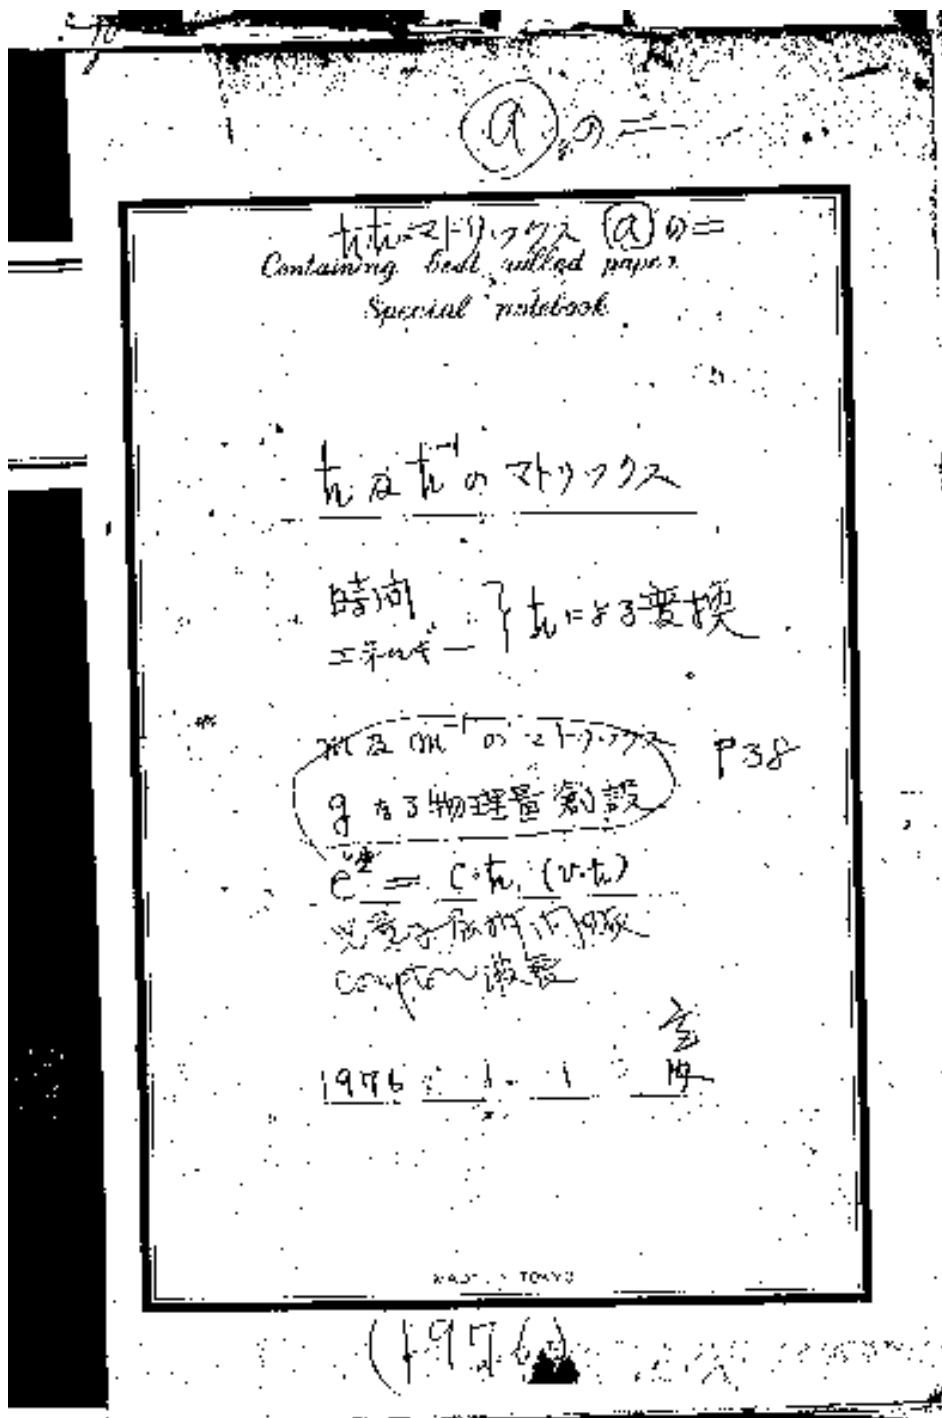 ⓐの二
ħ・ħ⁻¹マトリックス ⓐの二
Containing best ruled paper
Special notebook
ħ及ħ⁻¹のマトリックス
時間
エネルギー } ħによる変換
m及m⁻¹のマトリックス P38
gなる物理量創設
e² = c・ħ (v・ħ)
Compton波長
1976 1. 1
MADE IN TOKYO
(1976)